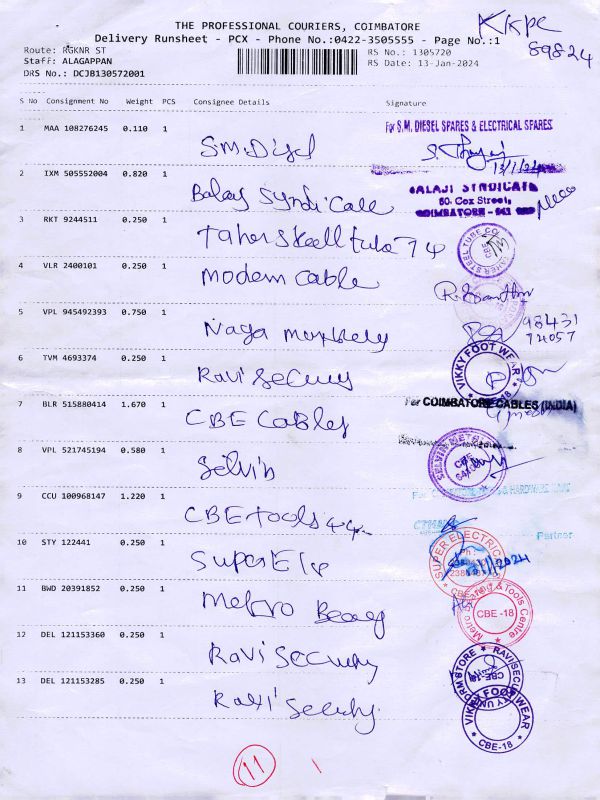 THE PROFESSIONAL COURIERS, COIMBATORE
Delivery Runsheet - PCX - Phone No.:0422-3505555 - Page No.:1
KKPC
89824
Route: RGKNR ST
RS No.: 1305720
Staff: ALAGAPPAN
RS Date: 13-Jan-2024
DRS No.: DCJB130572001
S No Consignment No Weight PCS Consignee Details Signature
1 MAA 108276245 0.110 1
For S.M. DIESEL SPARES & ELECTRICAL SPARES
S.M. Disel
13/1/24
2 IXM 505552004 0.820 1
Balaji Syndicate
BALAJI SYNDICATE
60. Cox Street,
COIMBATORE - 641
3 RKT 9244511 0.250 1
Taher Steell tube
TAHER STEEL TUBE CO.
CBE
4 VLR 2400101 0.250 1
Modern Cable
5 VPL 945492393 0.750 1
Naga
98431
72057
6 TVM 4693374 0.250 1
Ravi Security
VIKKY FOOT WEAR
7 BLR 515880414 1.670 1
For COIMBATORE CABLES (INDIA)
CBE Cables
8 VPL 521745194 0.580 1
Selvin
SELVIN METALS
CBE
9 CCU 100968147 1.220 1
CBE tools
Partner
10 STY 122441 0.250 1
Super Ele
SUPER ELECTRICAL
Ph :
CBE
2024
11 BWD 20391852 0.250 1
Metro Bearing
Metro Bearing & Tools Centre
CBE -18
12 DEL 121153360 0.250 1
Ravi Security
13 DEL 121153285 0.250 1
Ravi Security
VIKKY FOOT WEAR
CBE-18
11